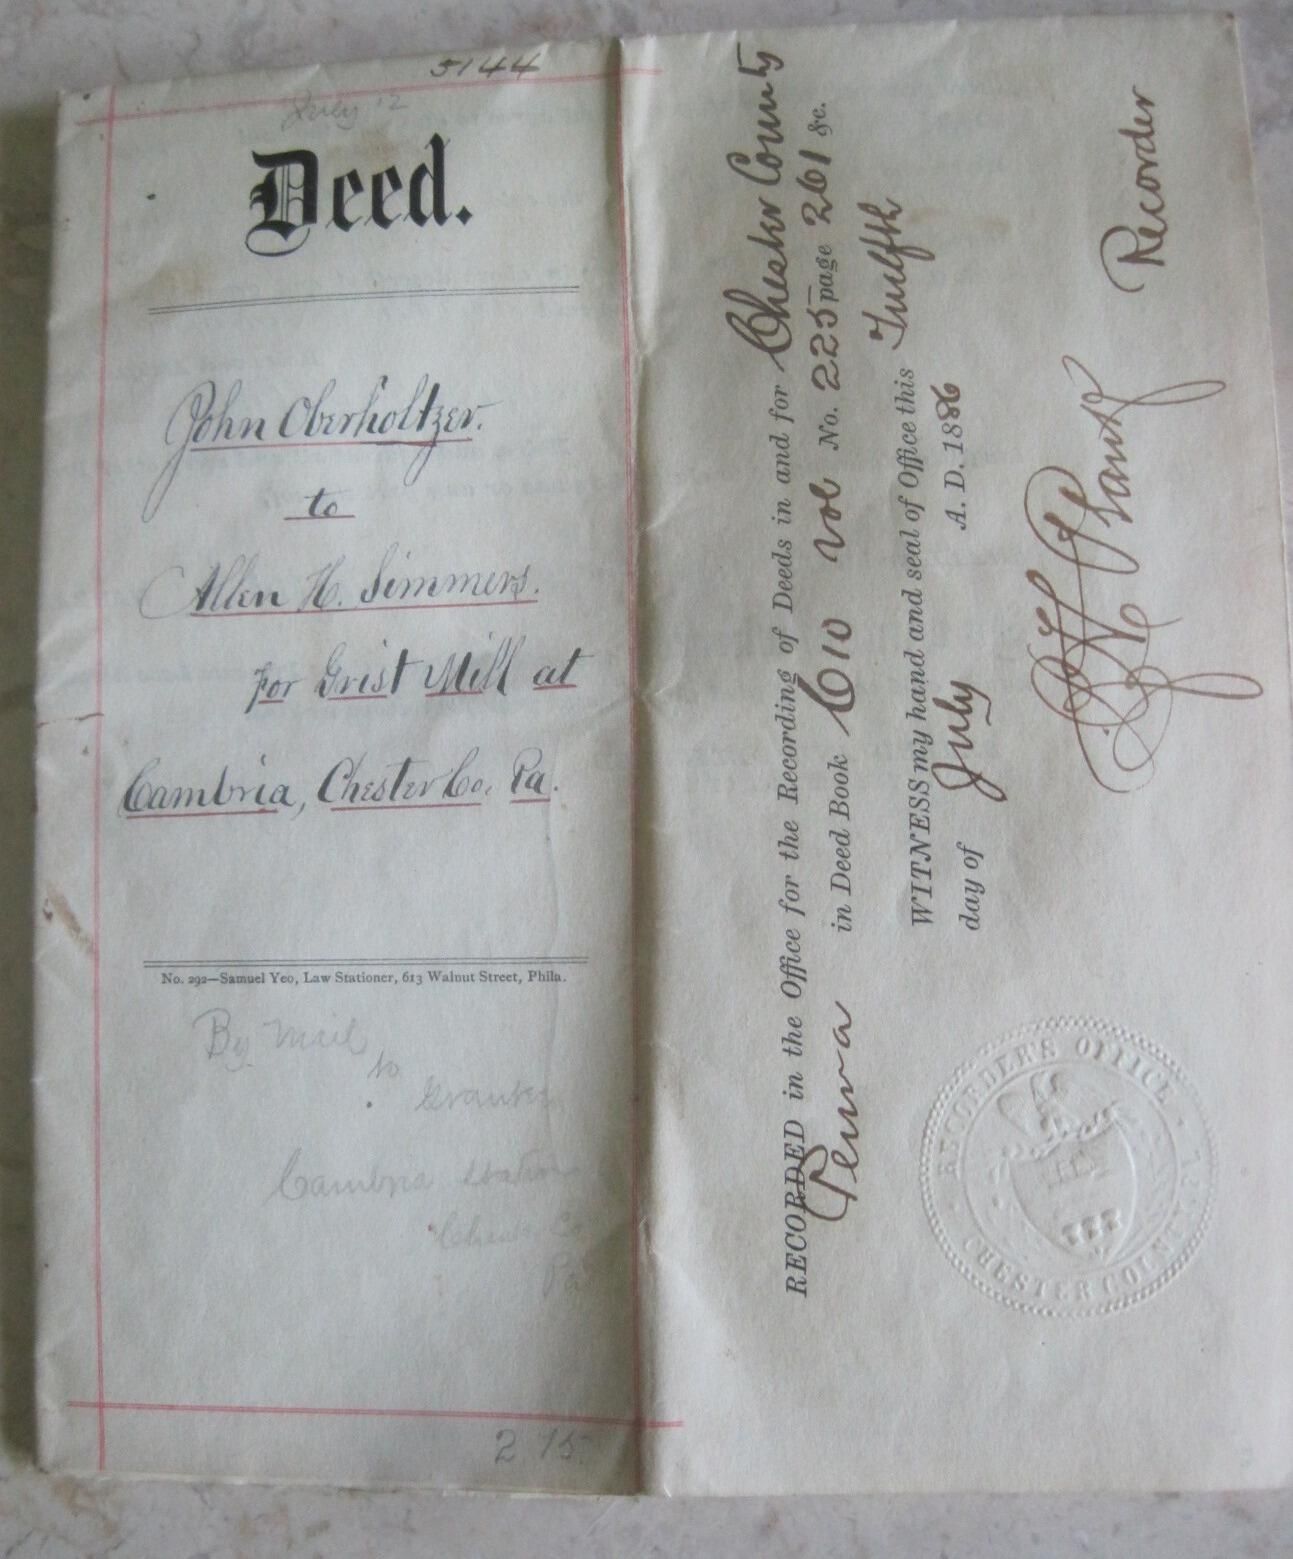 5144
July 12
Deed.
John Oberholtzer.
to
Allen H. Simmers.
for Grist Mill at
Cambria, Chester Co. Pa.
No. 292—Samuel Yeo, Law Stationer, 613 Walnut Street, Phila.
By Mail
to
Grantee
Cambria Station
Chester Co
Pa
2.75
RECORDED in the Office for the Recording of Deeds in and for Chester County
Penna in Deed Book C10 vol No. 225 page 261 &c.
WITNESS my hand and seal of Office this Twelfth
day of July A. D. 1886
Recorder
RECORDER'S OFFICE
CHESTER COUNTY, PA